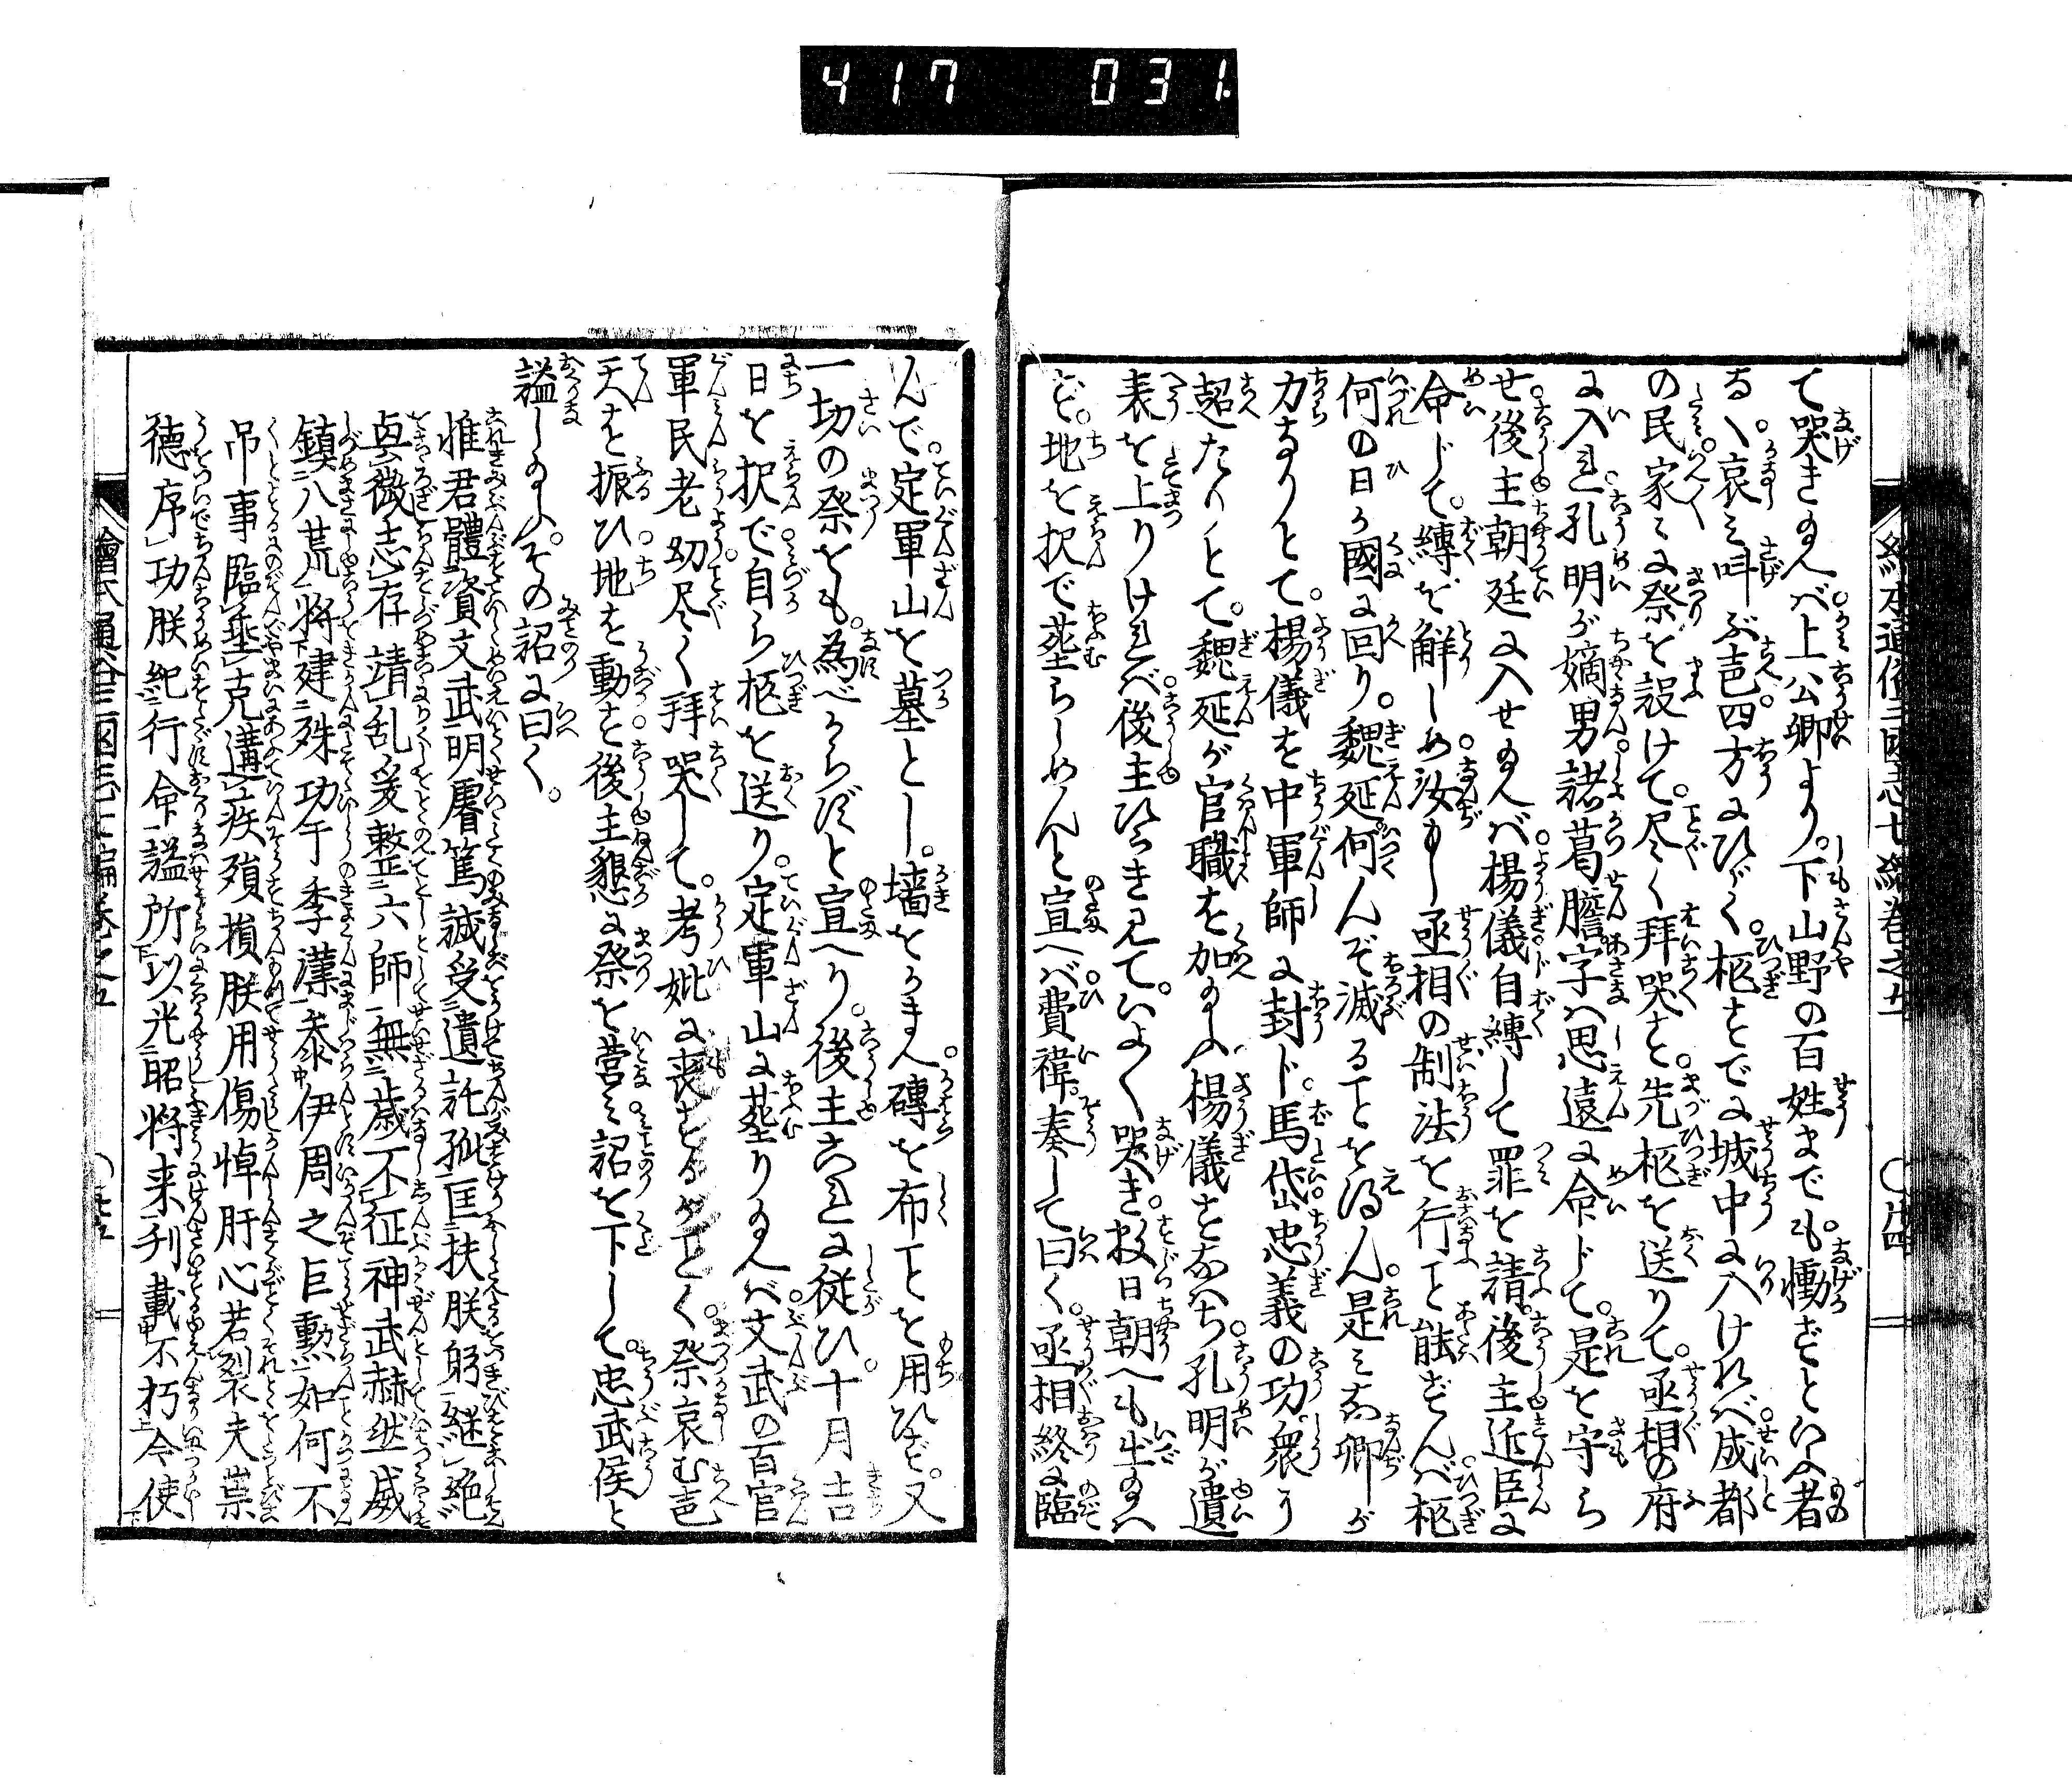 417 031
て哭き玉へバ上公卿より。下山野の百姓までも。慟ざといふ者
なく。哀み叫ぶ声。四方にひゞく。柩すでに城中に入けれバ成都
の民家〻に祭を設けて。尽く拜哭す。先柩を送りて。丞相の府
に入孔明が嫡男諸葛瞻字ハ思遠に命ドて。是を守ら
せ。後主朝廷に入せ玉へバ。楊儀自縛して罪を請。後主近臣に
命じて。縛を解しめ。汝もし丞相の制法を行ヿ能ざんバ。柩
何の日か國に回り。魏延何んぞ滅るヿを得ん。是みな卿が
力なりとて。楊儀を中軍師に封ド。馬岱忠義の功。衆に
超たりとて。魏延が官職を加玉ふ。楊儀すなハち。孔明が遺
表を上りけれバ。後主ひらき見て。いよ〱哭き。数日朝へも出玉ハ
ず。地を択で葬らしめんと宣へバ。費禕。奏して曰く。丞相終に臨
んで。定軍山を墓とし。墻をかまへ。磚を布ヿを用ひず。又
一切の祭をも。為べからずと宣へり。後主これに従ひ。十月吉
日を択で自ら柩を送り。定軍山に葬り玉へバ。文武の百官
軍民老幼尽く拜哭して。考妣に喪するがごとく。祭哀む声
天を振ひ地を動す。後主懇に祭を営み詔を下して。忠武侯と
謚し玉ふ。その詔に曰く。
惟君體資文武明睿篤誠受遺託孤匡扶朕躬継絶
興微志存靖乱爰整六師無歳不征神武赫然威
鎮八荒将建殊功于季漢叅伊周之巨勲如何不
吊事臨垂克遘疾殞損朕用傷悼肝心若裂夫崇
德序功朕紀行命謚所以光昭将来刋載不朽今使